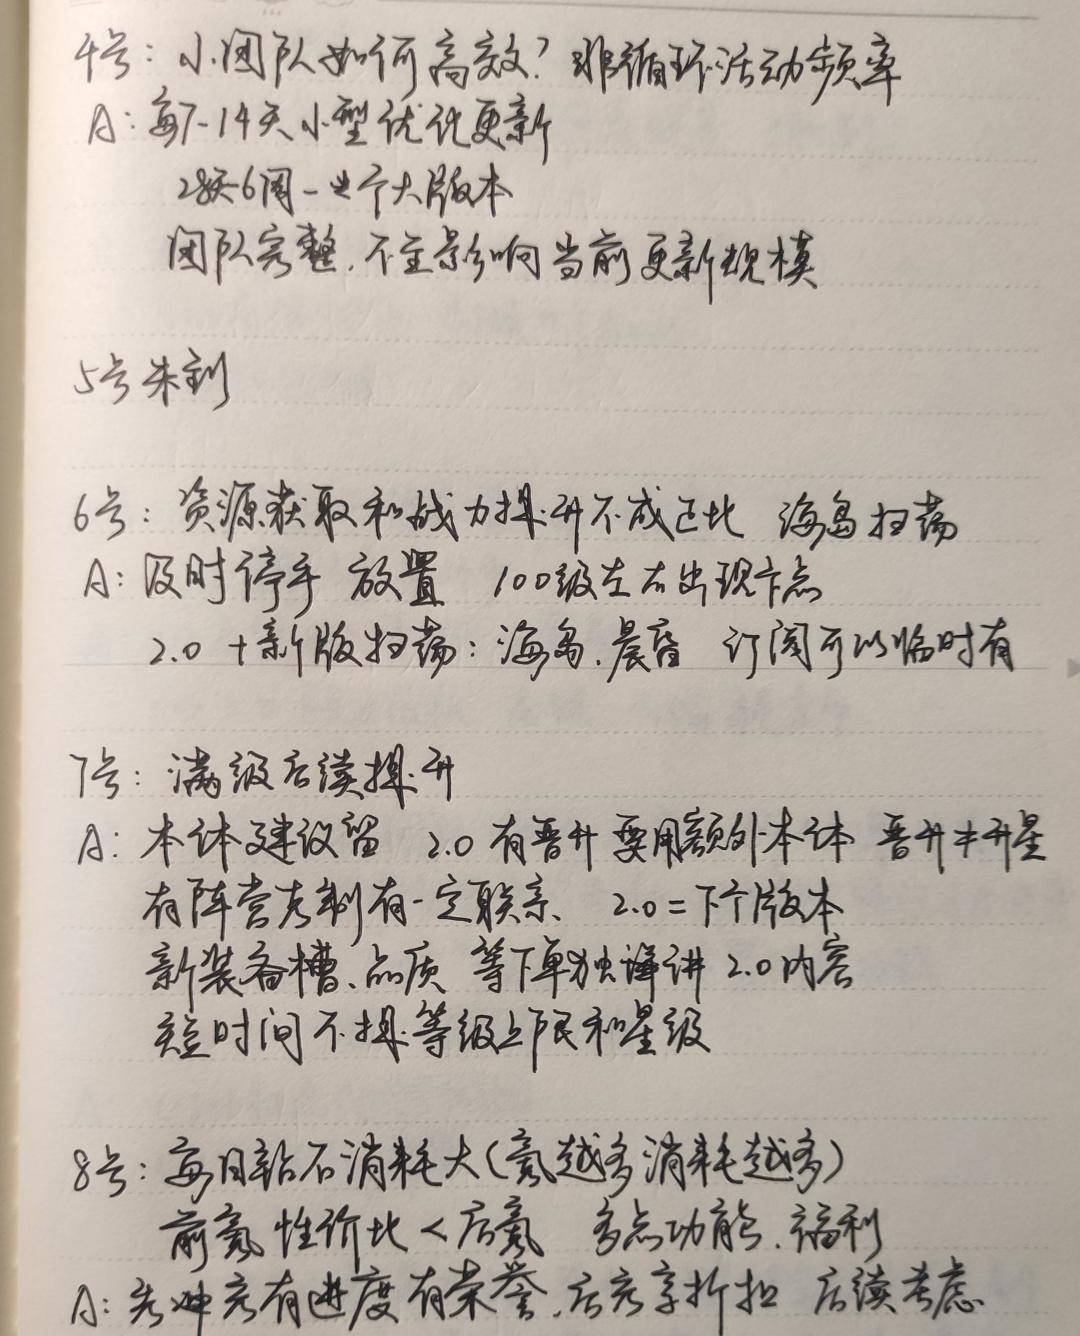 4号：小团队如何高效？非循环活动频率
A：每7-14天小型优化更新
28天6周一个大版本
团队完整、不会影响当前更新规模
5号未到
6号：资源获取和战力提升不成正比 海岛扫荡
A：及时停手 放置 100级左右出现卡点
2.0 十新版扫荡：海岛、晨昏 订阅可以临时有
7号：满级后续提升
A：本体建议留 2.0有晋升 要用额外本体 晋升≠升星
有阵营克制有一定联系 2.0=下个版本
新装备槽、品质 等下单独详讲2.0内容
短时间不提等级上限和星级
8号：每日钻石消耗大（氪越多消耗越多）
前氪性价比<后氪 多点功能、福利
A：先冲充有进度有荣誉、后充享折扣 后续考虑